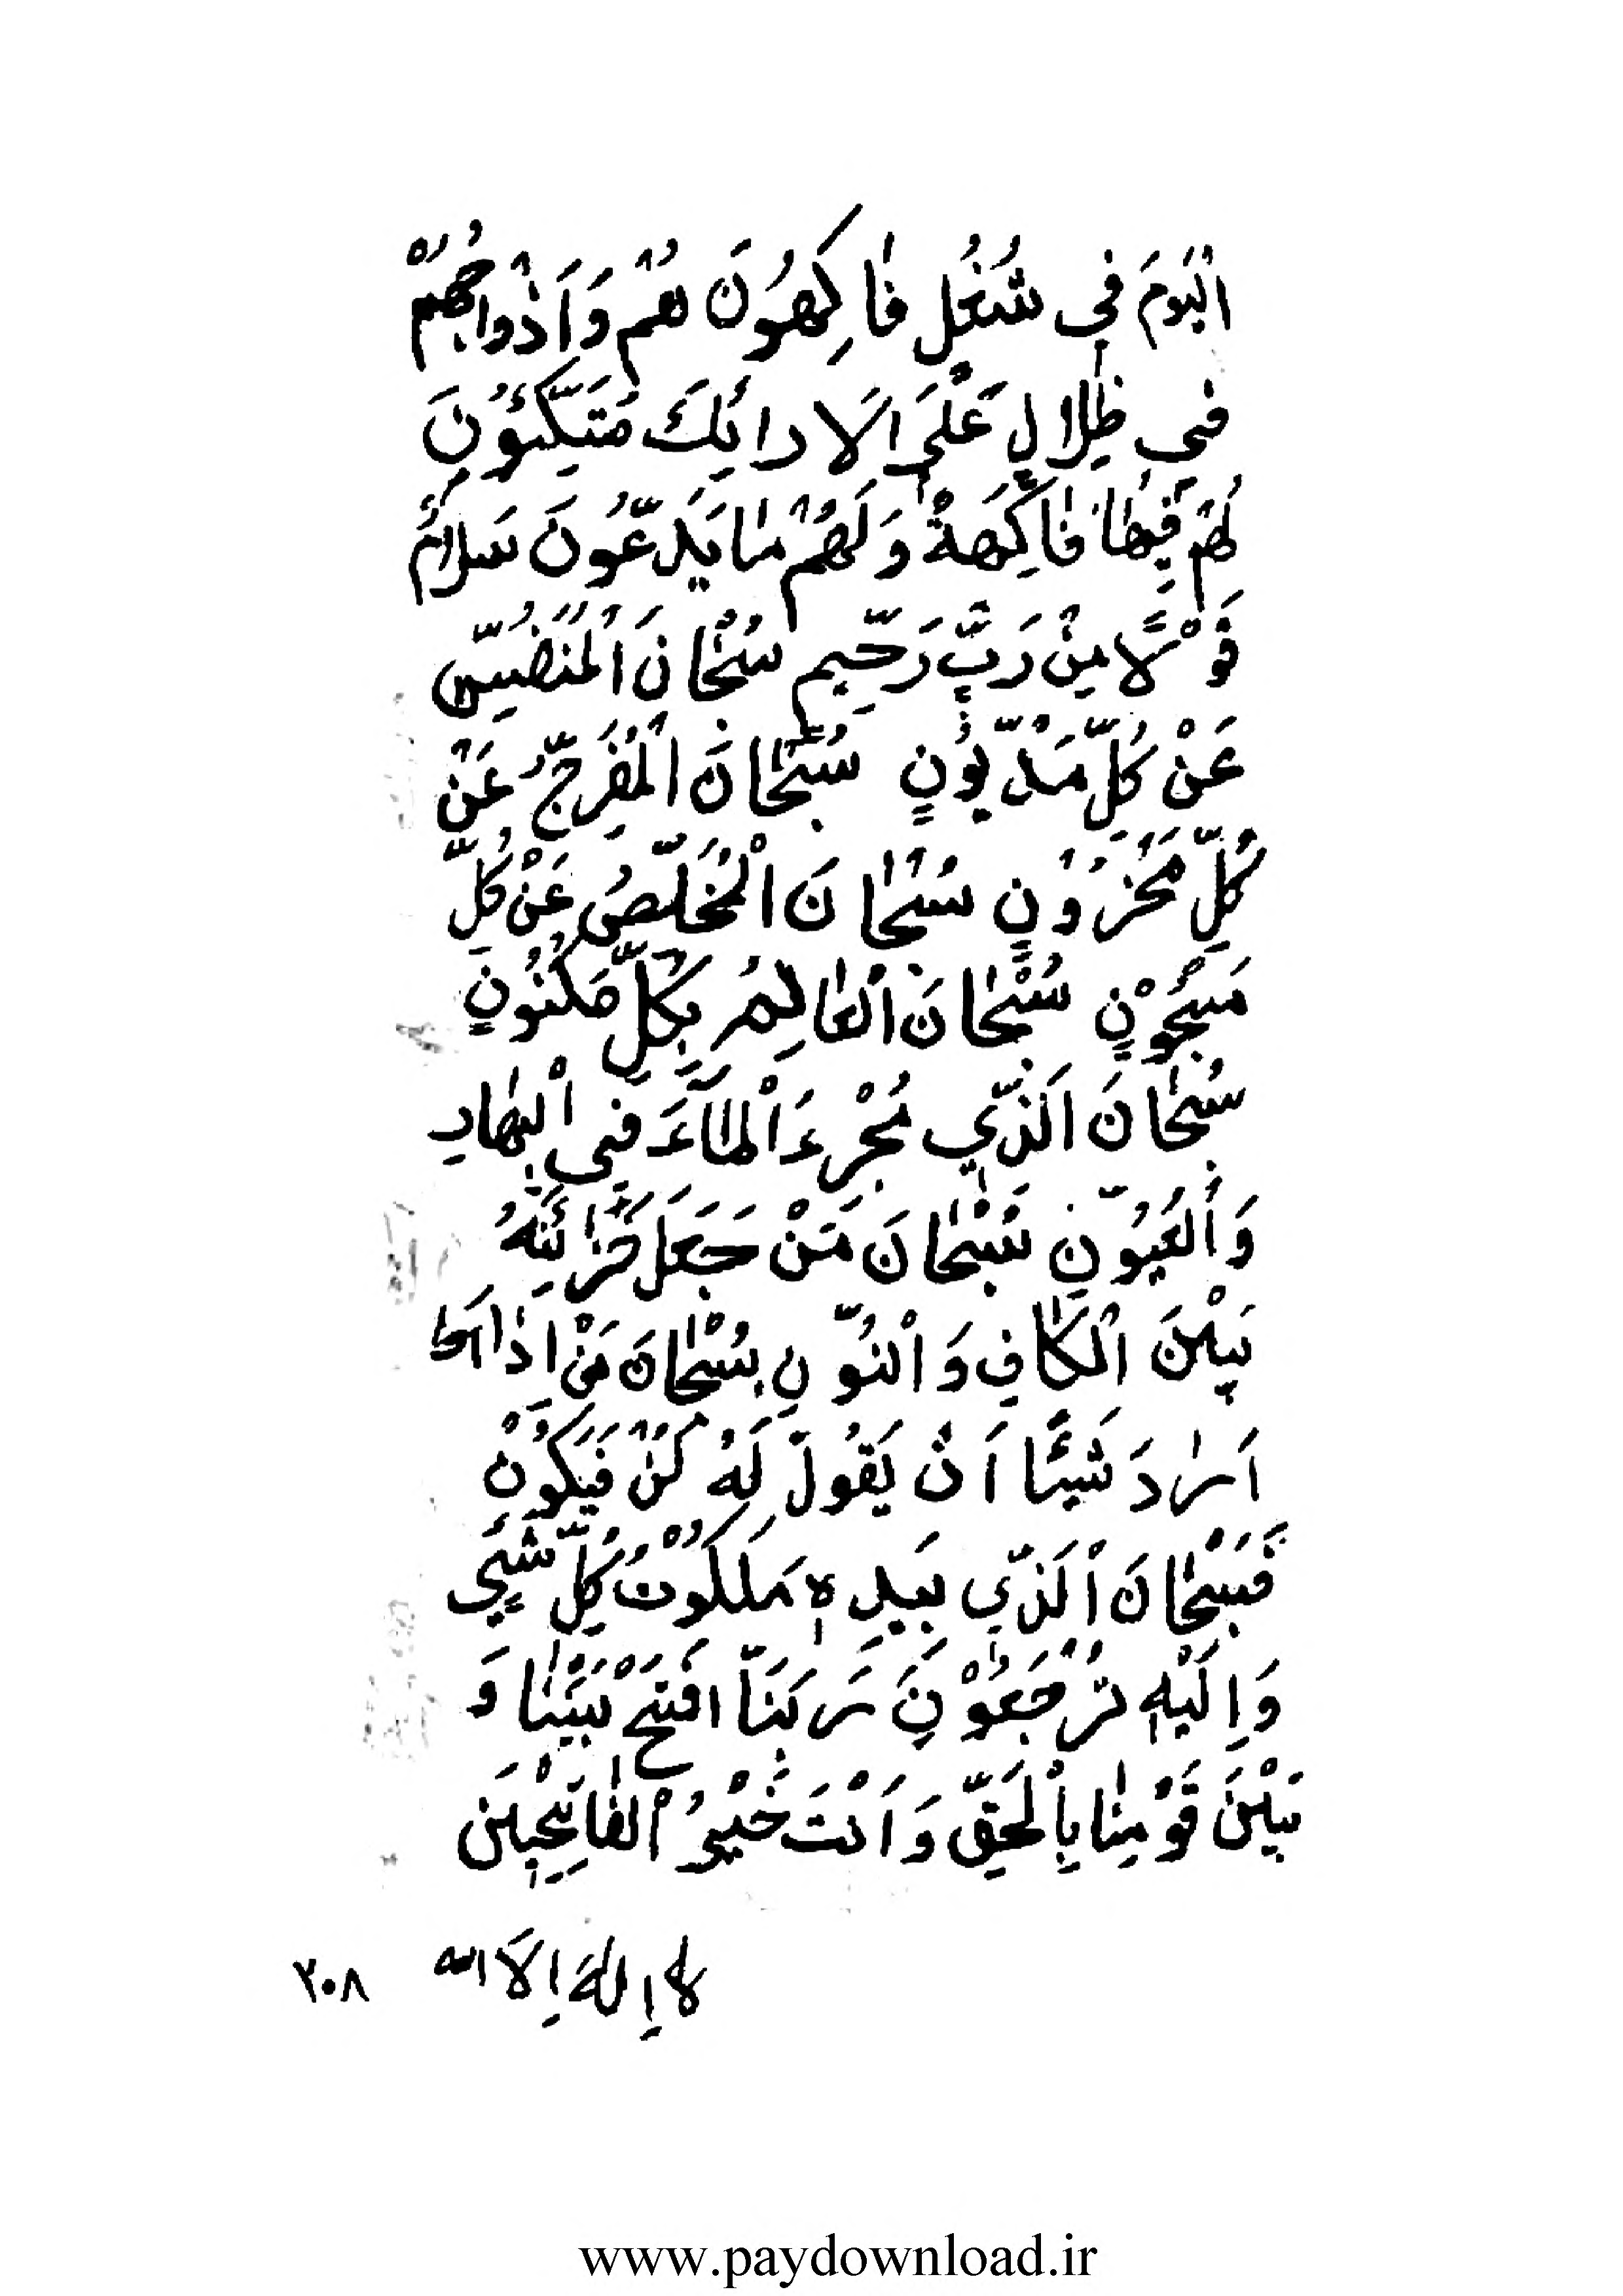 اْليَومَ فِي شُغُلٍ فٰاكِهُونَ هُمْ وَاَذْواجُهُمْ
فِي ظِلالٍ عَلَى الَاْرائِكَ مُتَكِّئوُنَ
لَهُمْ فِيهٰا فٰاكِهَةْ وَلَهُمْ مٰا يَدَّعُونَ سَلامٌ
قَوْلًا مِنْ رَبٍّ رَحِّيم سُبْحٰانَ اَلْمُنَفِّسِ
عَنْ كُلِّ مَدْيُونٍ سُبْحٰانَ الْمُفَرِّجُ عَنْ
كُلِّ مَحْزُوْنٍ سُبْحٰانَ اْلمُخَلِّصُ عَنْ كُلِّ
مَسْجُوْنٍ سُبْحٰانَ اْلعٰالِمُ بِكُلِّ مَكْنُوُنٍ
سُبْحٰانَ اَلَذّي مُجْرِءَ اْلمٰآءَ فِى اْلبِهٰارِ
وَاْلعُيُوّنِ سُبْحٰانَ مَنْ جَعَلَ خَزٰائِنَهُ
بَيْنَ اْلكٰافِ وَاْلنُوّنِ سُبْحٰانَ مَنْ اِذٰا
اَرٰادَ شَيْئًا اَنْ يَقُولَ لَهُ كُنْ فَيَكُوُنْ
فَسُبْحٰانَ اْلَذّي بِيَدِهٖ مَلَكُوْتُ كُلِّ شَيْءٍ
وَاِلَيْهِ تُرْجَعُوْنَ رَبَنَّا افْتَحْ بَيْنَنٰا وَ
بَيْنَ قَوْمِنٰا بِاْلحَقِّ وَاَنْتَ خَيْرُ اْلفٰاتِحِينَ
لا اِلٰهَ اِلاَ الله ٢٠٨
www.paydownload.ir